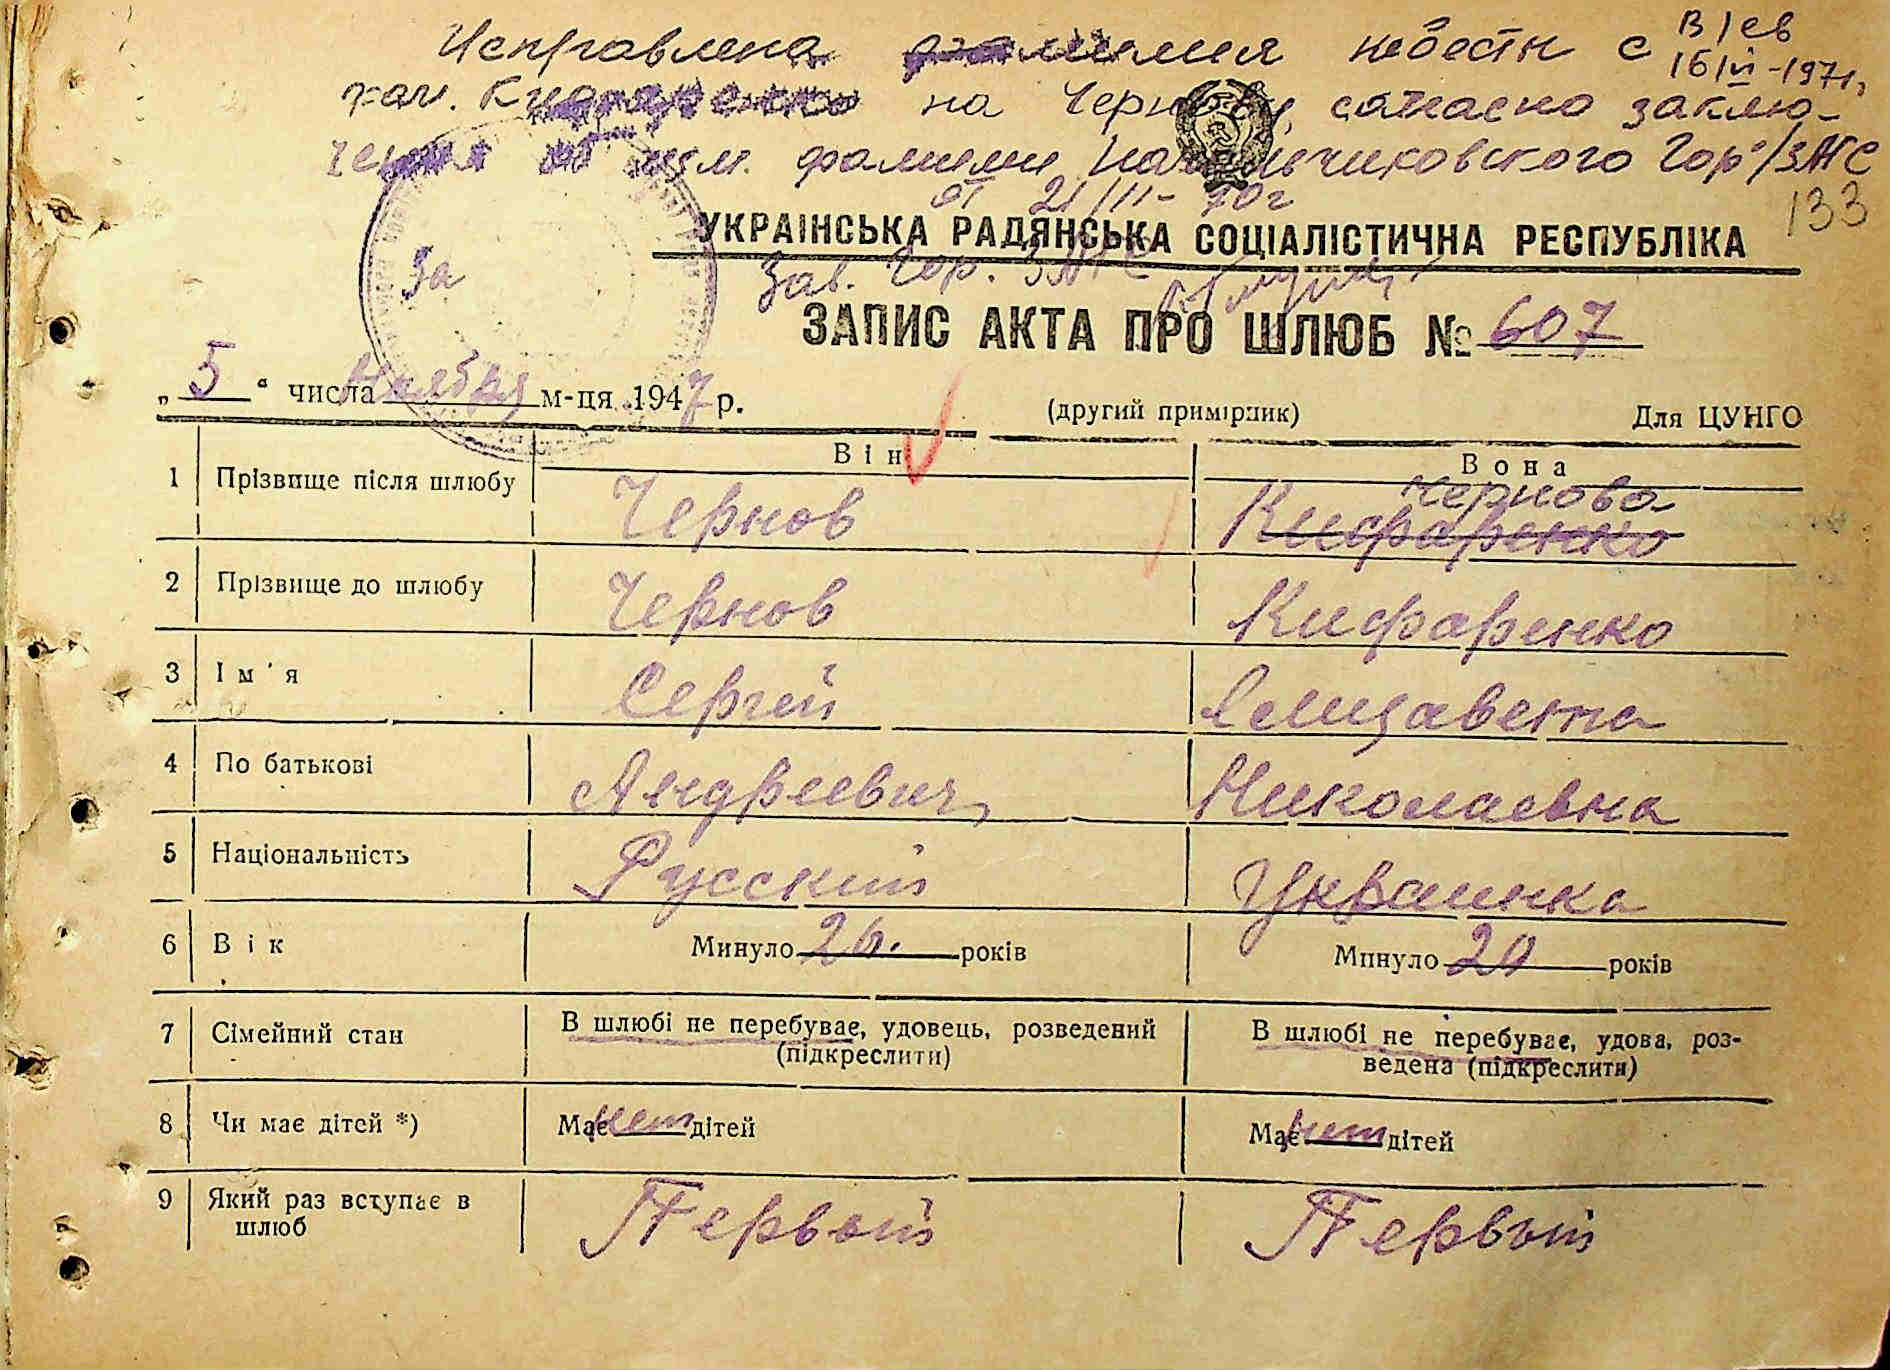 Исправлена фамилия невесты с
В/св
16/VI-1971г.
фам. Кифаренко на Чернову, согласно заклю-
чения об изм. фамилии Нальчиковского Гор/ЗАГС
от 21/III-70г
133
УКРАЇНСЬКА РАДЯНСЬКА СОЦІАЛІСТИЧНА РЕСПУБЛІКА
За
Зав. Гор. ЗАГС
ЗАПИС АКТА ПРО ШЛЮБ № 607
„ 5 “ числа Ноября м-ця 1947 р.
(другий примірник) Для ЦУНГО
Він Вона
1 Прізвище після шлюбу Чернов Кифаренко Чернова
2 Прізвище до шлюбу Чернов Кифаренко
3 Ім'я Сергей Елизавета
4 По батькові Андреевич Николаевна
5 Національність Русский Украинка
6 Вік Минуло 26. років Минуло 20 років
7 Сімейний стан В шлюбі не перебуває, удовець, розведений В шлюбі не перебуває, удова, роз-
(підкреслити) ведена (підкреслити)
8 Чи має дітей *) Має нет дітей Має нет дітей
9 Який раз вступає в Первый Первый
шлюб